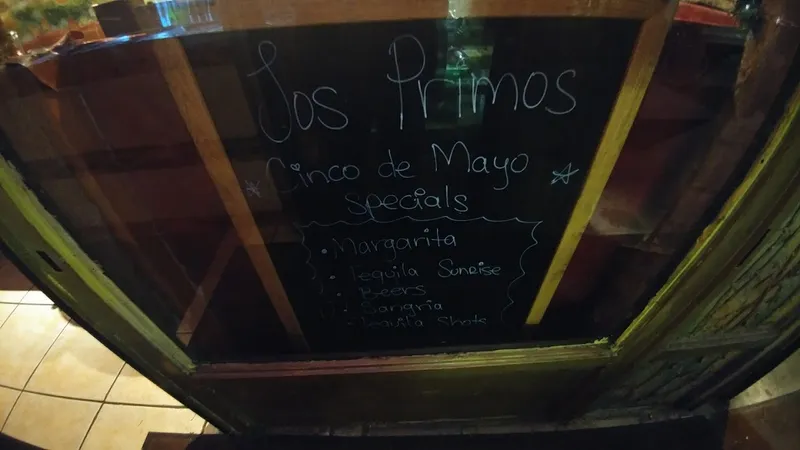 Los Primos
Cinco de Mayo
specials
• Margarita
• Tequila Sunrise
• Beers
• Sangria
• Tequila Shots